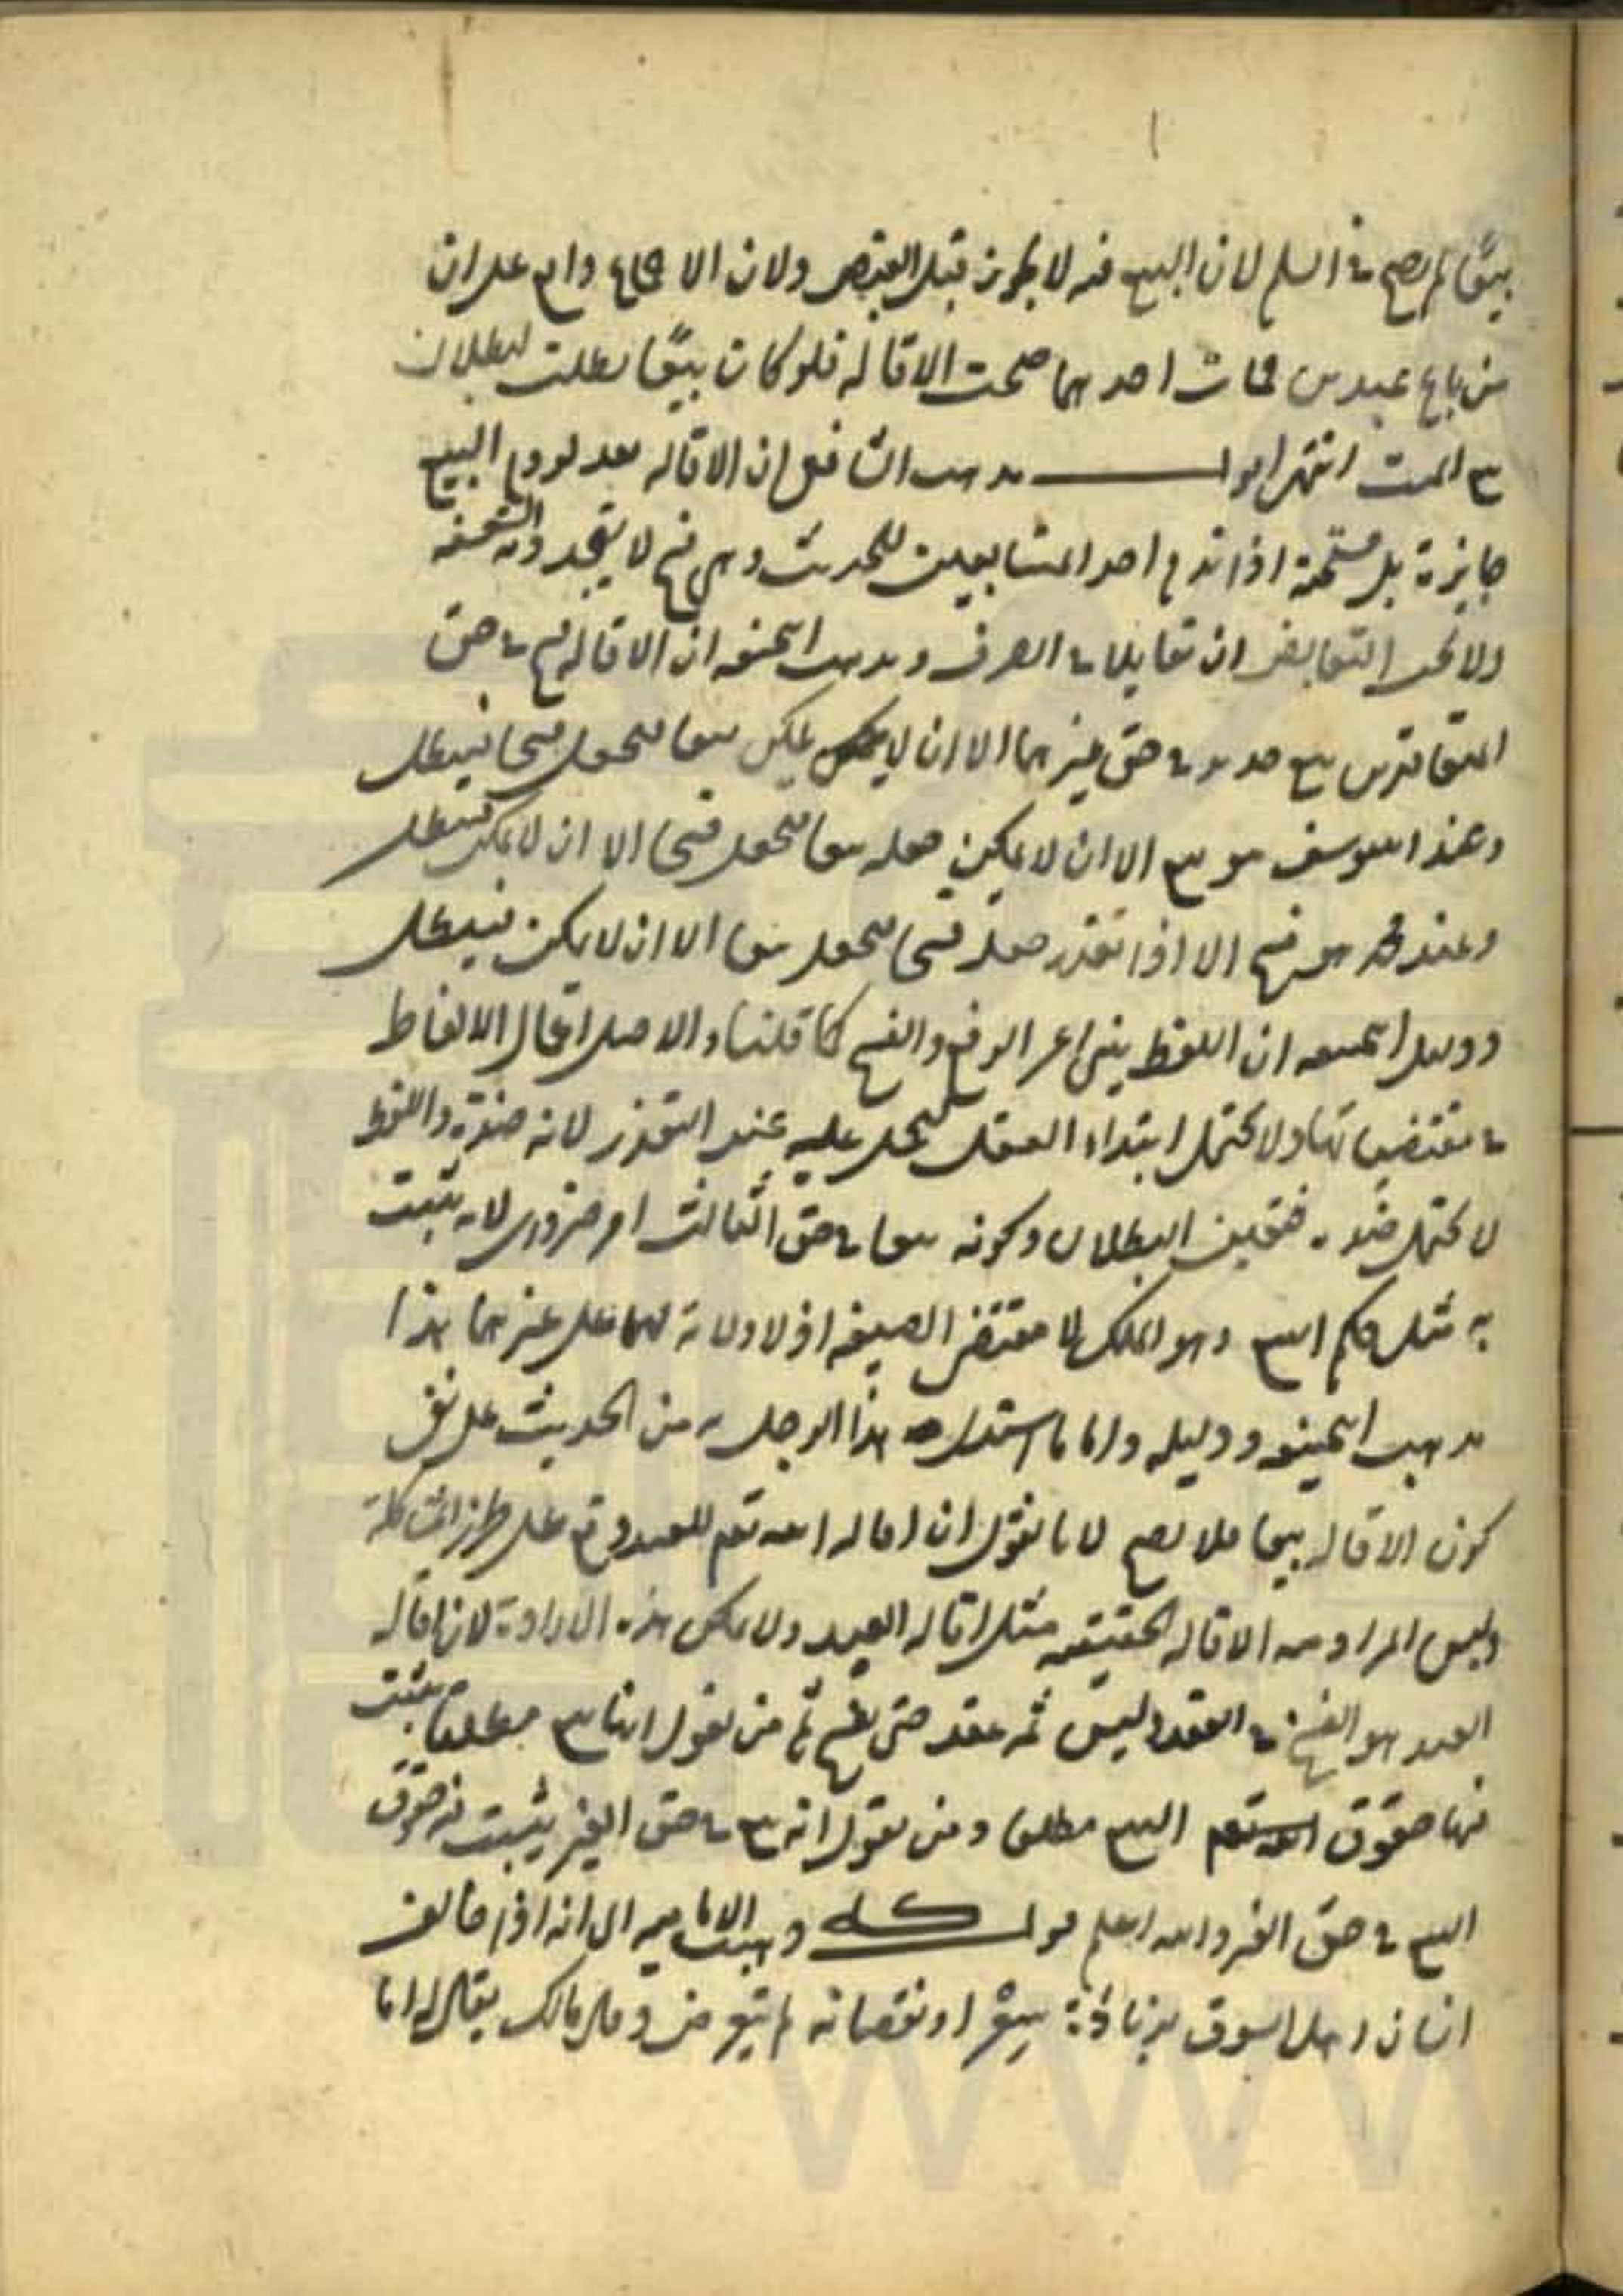 بيعًا لم يصح في السلم لان البيع فيه لا يجوز قبل القبض ولان الاجماع دام على ان
من باع عبدين فمات احدهما صحت الاقالة فلو كانت بيعًا بطلت لبطلان
بيع الميت انتهى اقول مذهب الشافعي ان الاقالة بعد لزوم البيع
جايزة بل مستحبة اذا ندم احد المتبايعين للحديث وهي فسخ لا يتجدد به الشفعة
ولا يجب التقابض ان تقايلا في الصرف ومذهب الحنفية ان الاقالة فسخ في حق
المتعاقدين بيع جديد في حق غيرهما الا ان لا يمكن بيعا فيبطل
وعند ابي يوسف هو بيع الا ان لا يمكن جعله بيعا فيجعل فسخا الا ان لا يمكن فيبطل
وعند محمد هو فسخ الا اذا تعذر جعله فسخا فيجعل بيعا الا ان لا يمكن فيبطل
ودليل الحنفية ان اللفظ ينبئ عن الرفع والفسخ كما قلنا والاصل اعمال الالفاظ
في مقتضياتها ولا يحتمل ابتداء العقد ليحمل عليه عند التعذر لانه ضده واللفظ
لا يحتمل ضده فتعين البطلان وكونه بيعا في حق الثالث امر ضروري لانه يثبت
به مثل حكم البيع وهو الملك لا مقتضى الصيغة اذ لا ولاية لهما على غيرهما هذا
مذهب الحنفية ودليله واما ما استدل به هذا الرجل من الحديث على نفي
كون الاقالة بيعا فلا يصح لانا نقول ان اقالة الله تعم للعبد وقع على طرز المشاكلة
وليس المراد منه الاقالة الحقيقية مثل اقالة العبد ولا يمكن هذه الارادة لان اقالة
العبد هو الفسخ في العقد وليس ثمه عقد حتى يفسخ ثم من يقول انها بيع مطلقا يثبت
فيها حقوق البيع مطلقا ومن يقول انه بيع في حق الغير يثبت فيه حقوق
البيع في حق الغير والله اعلم قوله ذهبت الامامية الى انه اذا خالف
انسان اهل السوق بزيادة سعر او نقصانه لم يتعرض وقال مالك يقال له اما